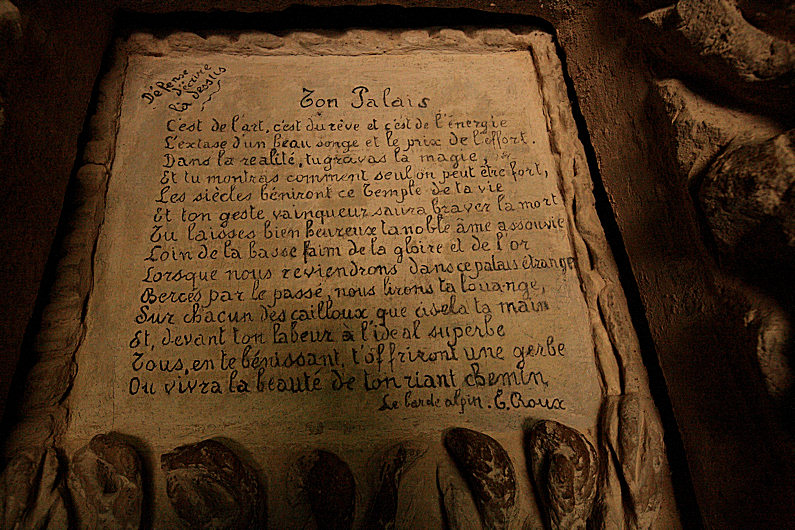 Défense
d'écrire
là dessus
Ton Palais
C'est de l'art, c'est du rêve et c'est de l'énergie
L'extase d'un beau songe et le prix de l'effort.
Dans la réalité, tu gravas la magie,
Et tu montras comment seul on peut être fort,
Les siècles béniront ce Temple de ta vie
Et ton geste vainqueur saura braver la mort
Tu laisses bien heureux ta noble âme assouvie
Loin de la basse faim de la gloire et de l'or
Lorsque nous reviendrons dans ce palais étrange,
Bercés par le passé, nous lirons ta louange,
Sur chacun des cailloux que cisela ta main
Et, devant ton labeur à l'idéal superbe
Tous, en te bénissant, t'offriront une gerbe
Où vivra la beauté de ton riant chemin
Le barde alpin. E. Roux